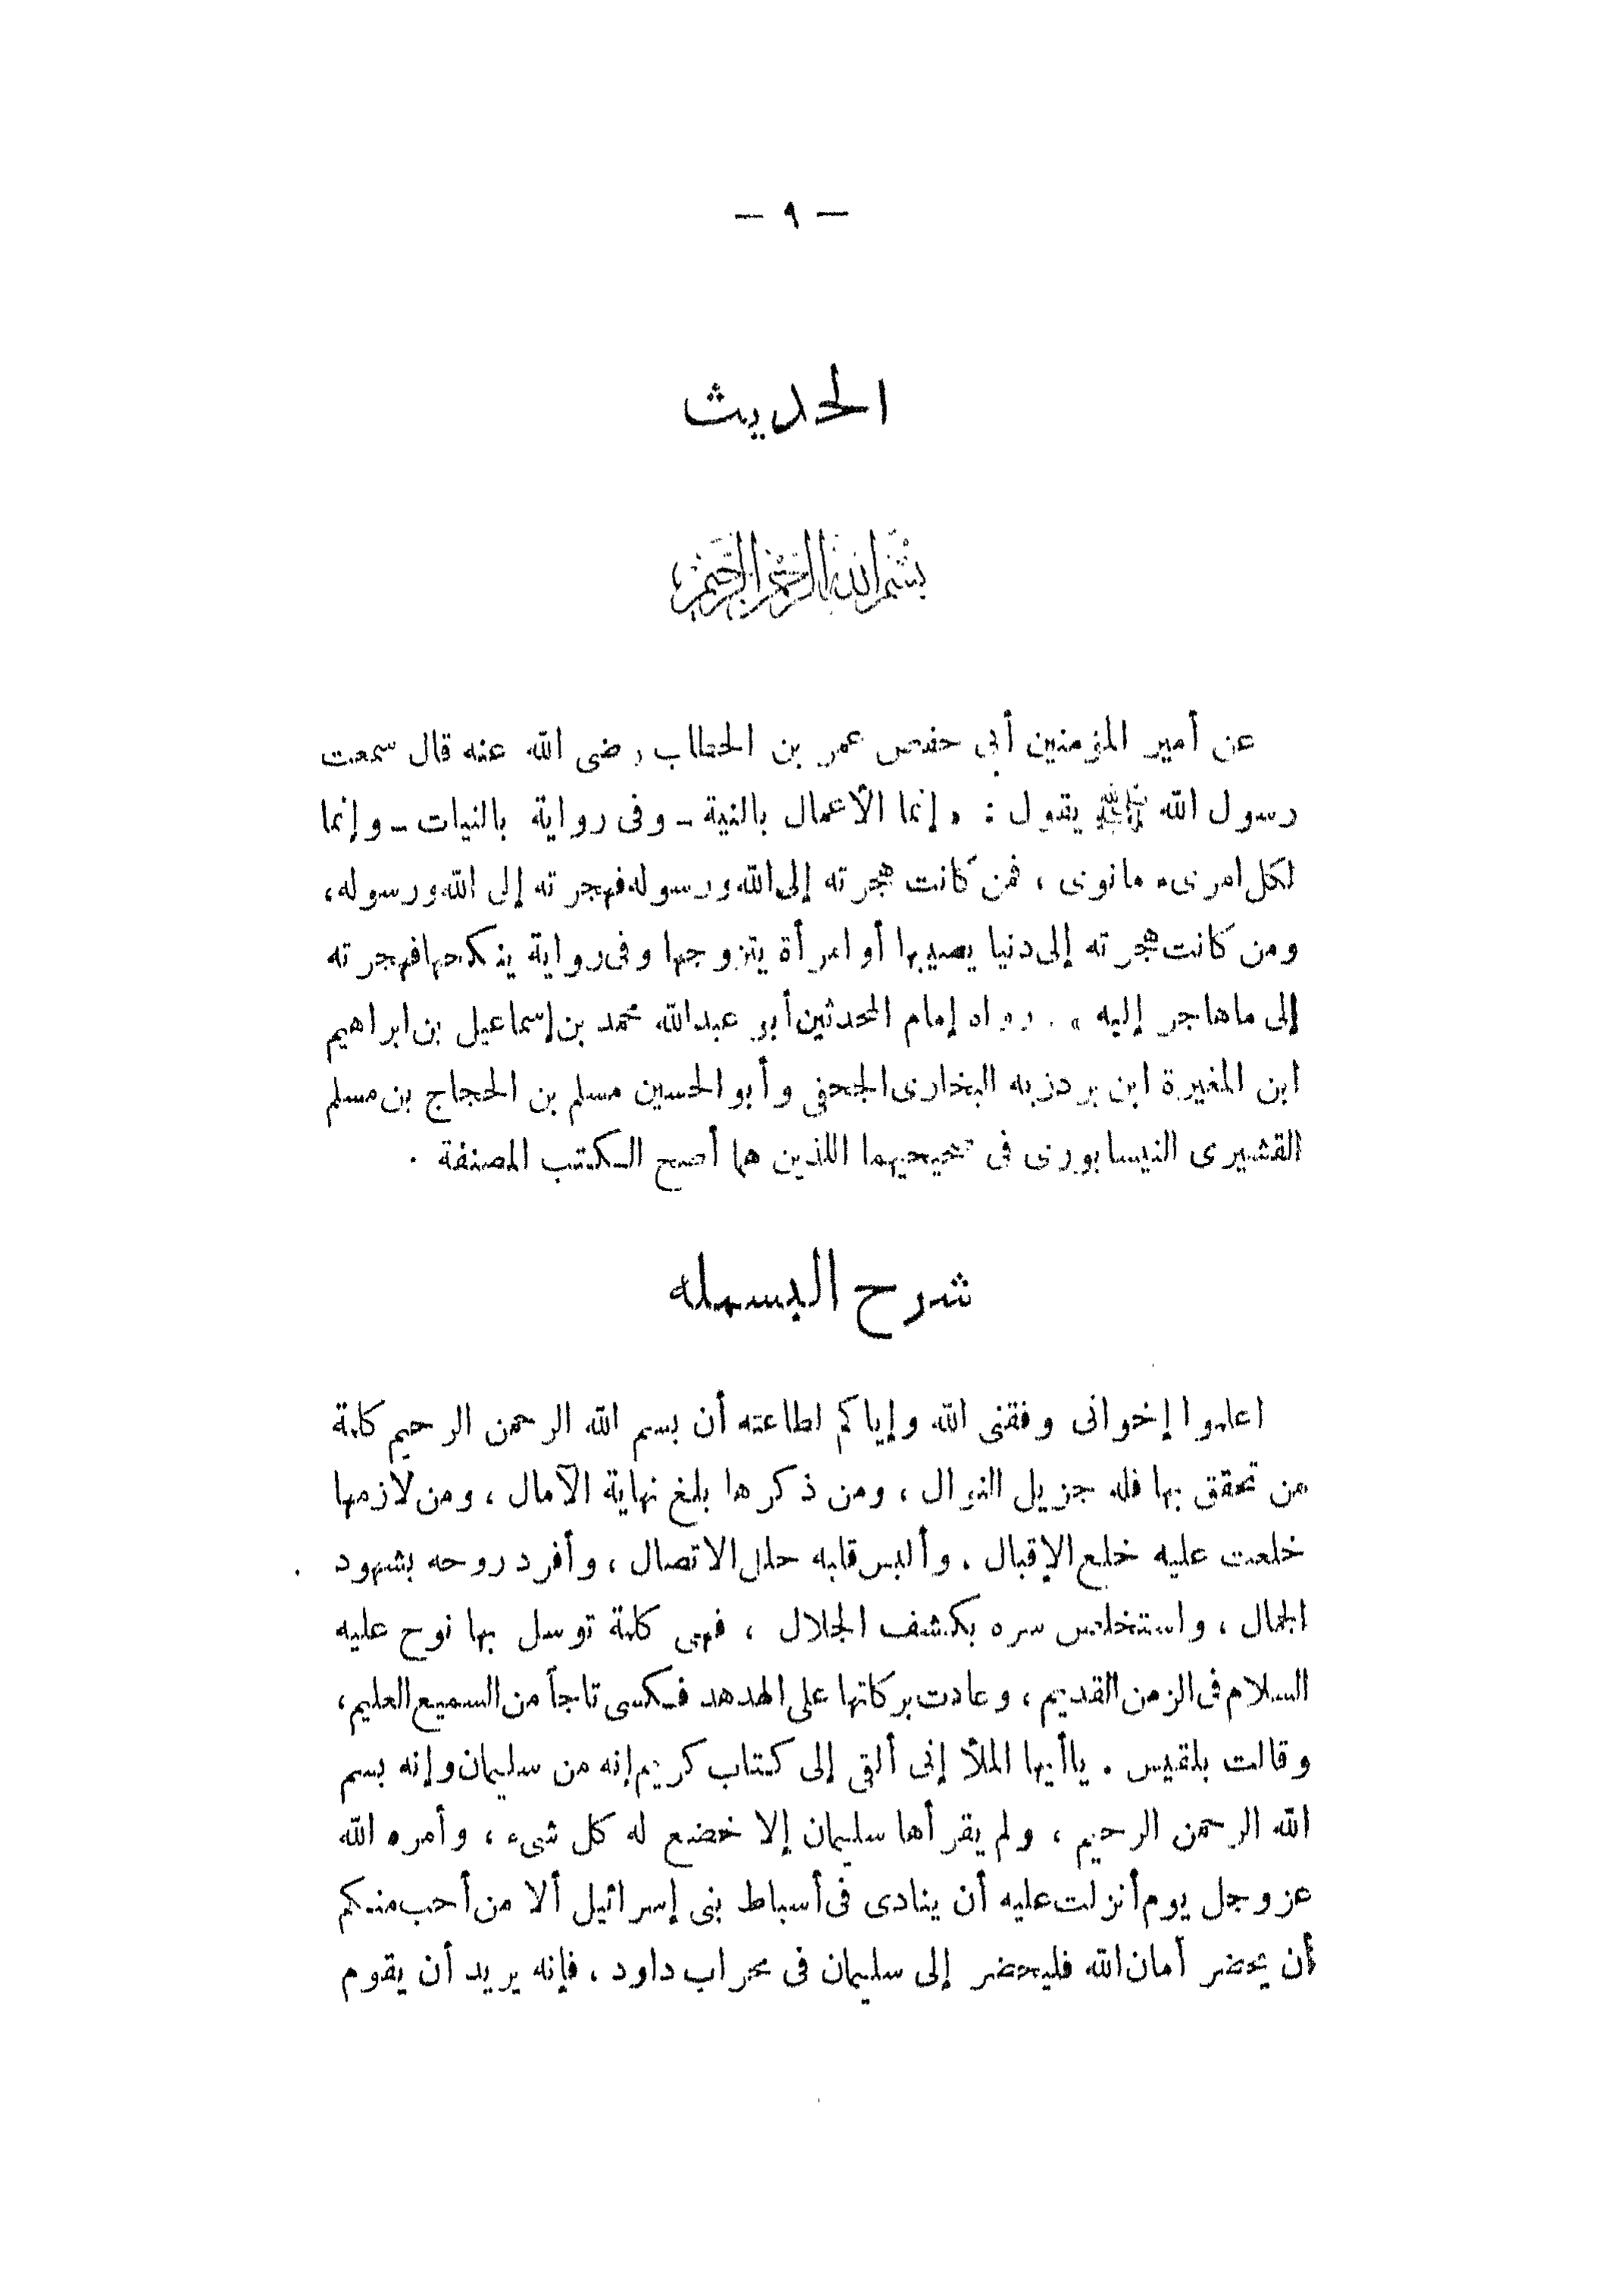 — ٩ —
الحديث
بسم الله الرحمن الرحيم
عن أمير المؤمنين أبى حفص عمر بن الخطاب رضى الله عنه قال سمعت
رسول الله ﷺ يقول : « إنما الأعمال بالنية - وفى رواية بالنيات - وإنما
لكل امرىء مانوى ، فمن كانت هجرته إلى الله ورسوله فهجرته إلى الله ورسوله،
ومن كانت هجرته إلى دنيا يصيبها أو امرأة يتزوجها وفى رواية ينكحها فهجرته
إلى ماهاجر إليه » . رواه إمام المحدثين أبو عبدالله محمد بن إسماعيل بن ابراهيم
ابن المغيرة ابن بردزبه البخارى الجحفى وأبو الحسين مسلم بن الحجاج بن مسلم
القشيرى النيسابورى فى صحيحيهما اللذين هما أصح الكتب المصنفة .
شرح البسمله
اعلموا إخوانى وفقنى الله وإياكم لطاعته أن بسم الله الرحمن الرحيم كلمة
من تحقق بها فله جزيل النوال ، ومن ذكرها بلغ نهاية الآمال ، ومن لازمها
خلعت عليه خلع الإقبال ، وألبس قلبه حلل الاتصال ، وأفرد روحه بشهود
الجمال ، واستخلص سره بكشف الجلال ، فهى كلمة توسل بها نوح عليه
السلام فى الزمن القديم ، وعادت بركاتها على الهدهد فكسى تاجاً من السميع العليم،
وقالت بلقيس . ياأيها الملأ إنى ألقى إلى كتاب كريم إنه من سليمان وإنه بسم
الله الرحمن الرحيم ، ولم يقرأها سليمان إلا خضع له كل شىء ، وأمره الله
عز وجل يوم أنزلت عليه أن ينادى فى أسباط بنى إسرائيل ألا من أحب منكم
أن يحضر أمان الله فليحضر إلى سليمان فى محراب داود ، فإنه يريد أن يقوم